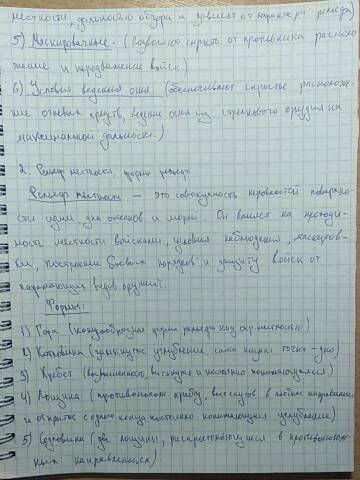 местности, дальностью обзора и зависит от характера рельефа)
5) Маскировочные. (Позволяют скрыть от противника располо-
жение и передвижение войск)
6) Условия ведения огня. (обеспечивают скрытое расположе-
ние огневых средств, ведение огня из стрелкового оружия на
максимальной дальности.)
2. Рельеф местности, формы рельефа
Рельеф местности – это совокупность неровностей поверхно-
сти суши, дна океанов и морей. Он влияет на проходи-
мости местности войсками, условия наблюдения, маскиров-
ки, построение боевых порядков и защиту войск от
поражающих видов оружия.
Формы:
1) Гора (конусообразная форма рельефа над окр. местностью)
2) Котловина (замкнутое углубление самая низкая точка - дно)
3) Хребет (возвышенность, вытянутая и постоянно понижающаяся)
4) Лощина (противополож. хребту, вытянутое в любом направлении
и открытое с одного конца постепенно понижающееся углубление)
5) Седловина (две лощины, распространяющиеся в противополож-
ных направлениях)